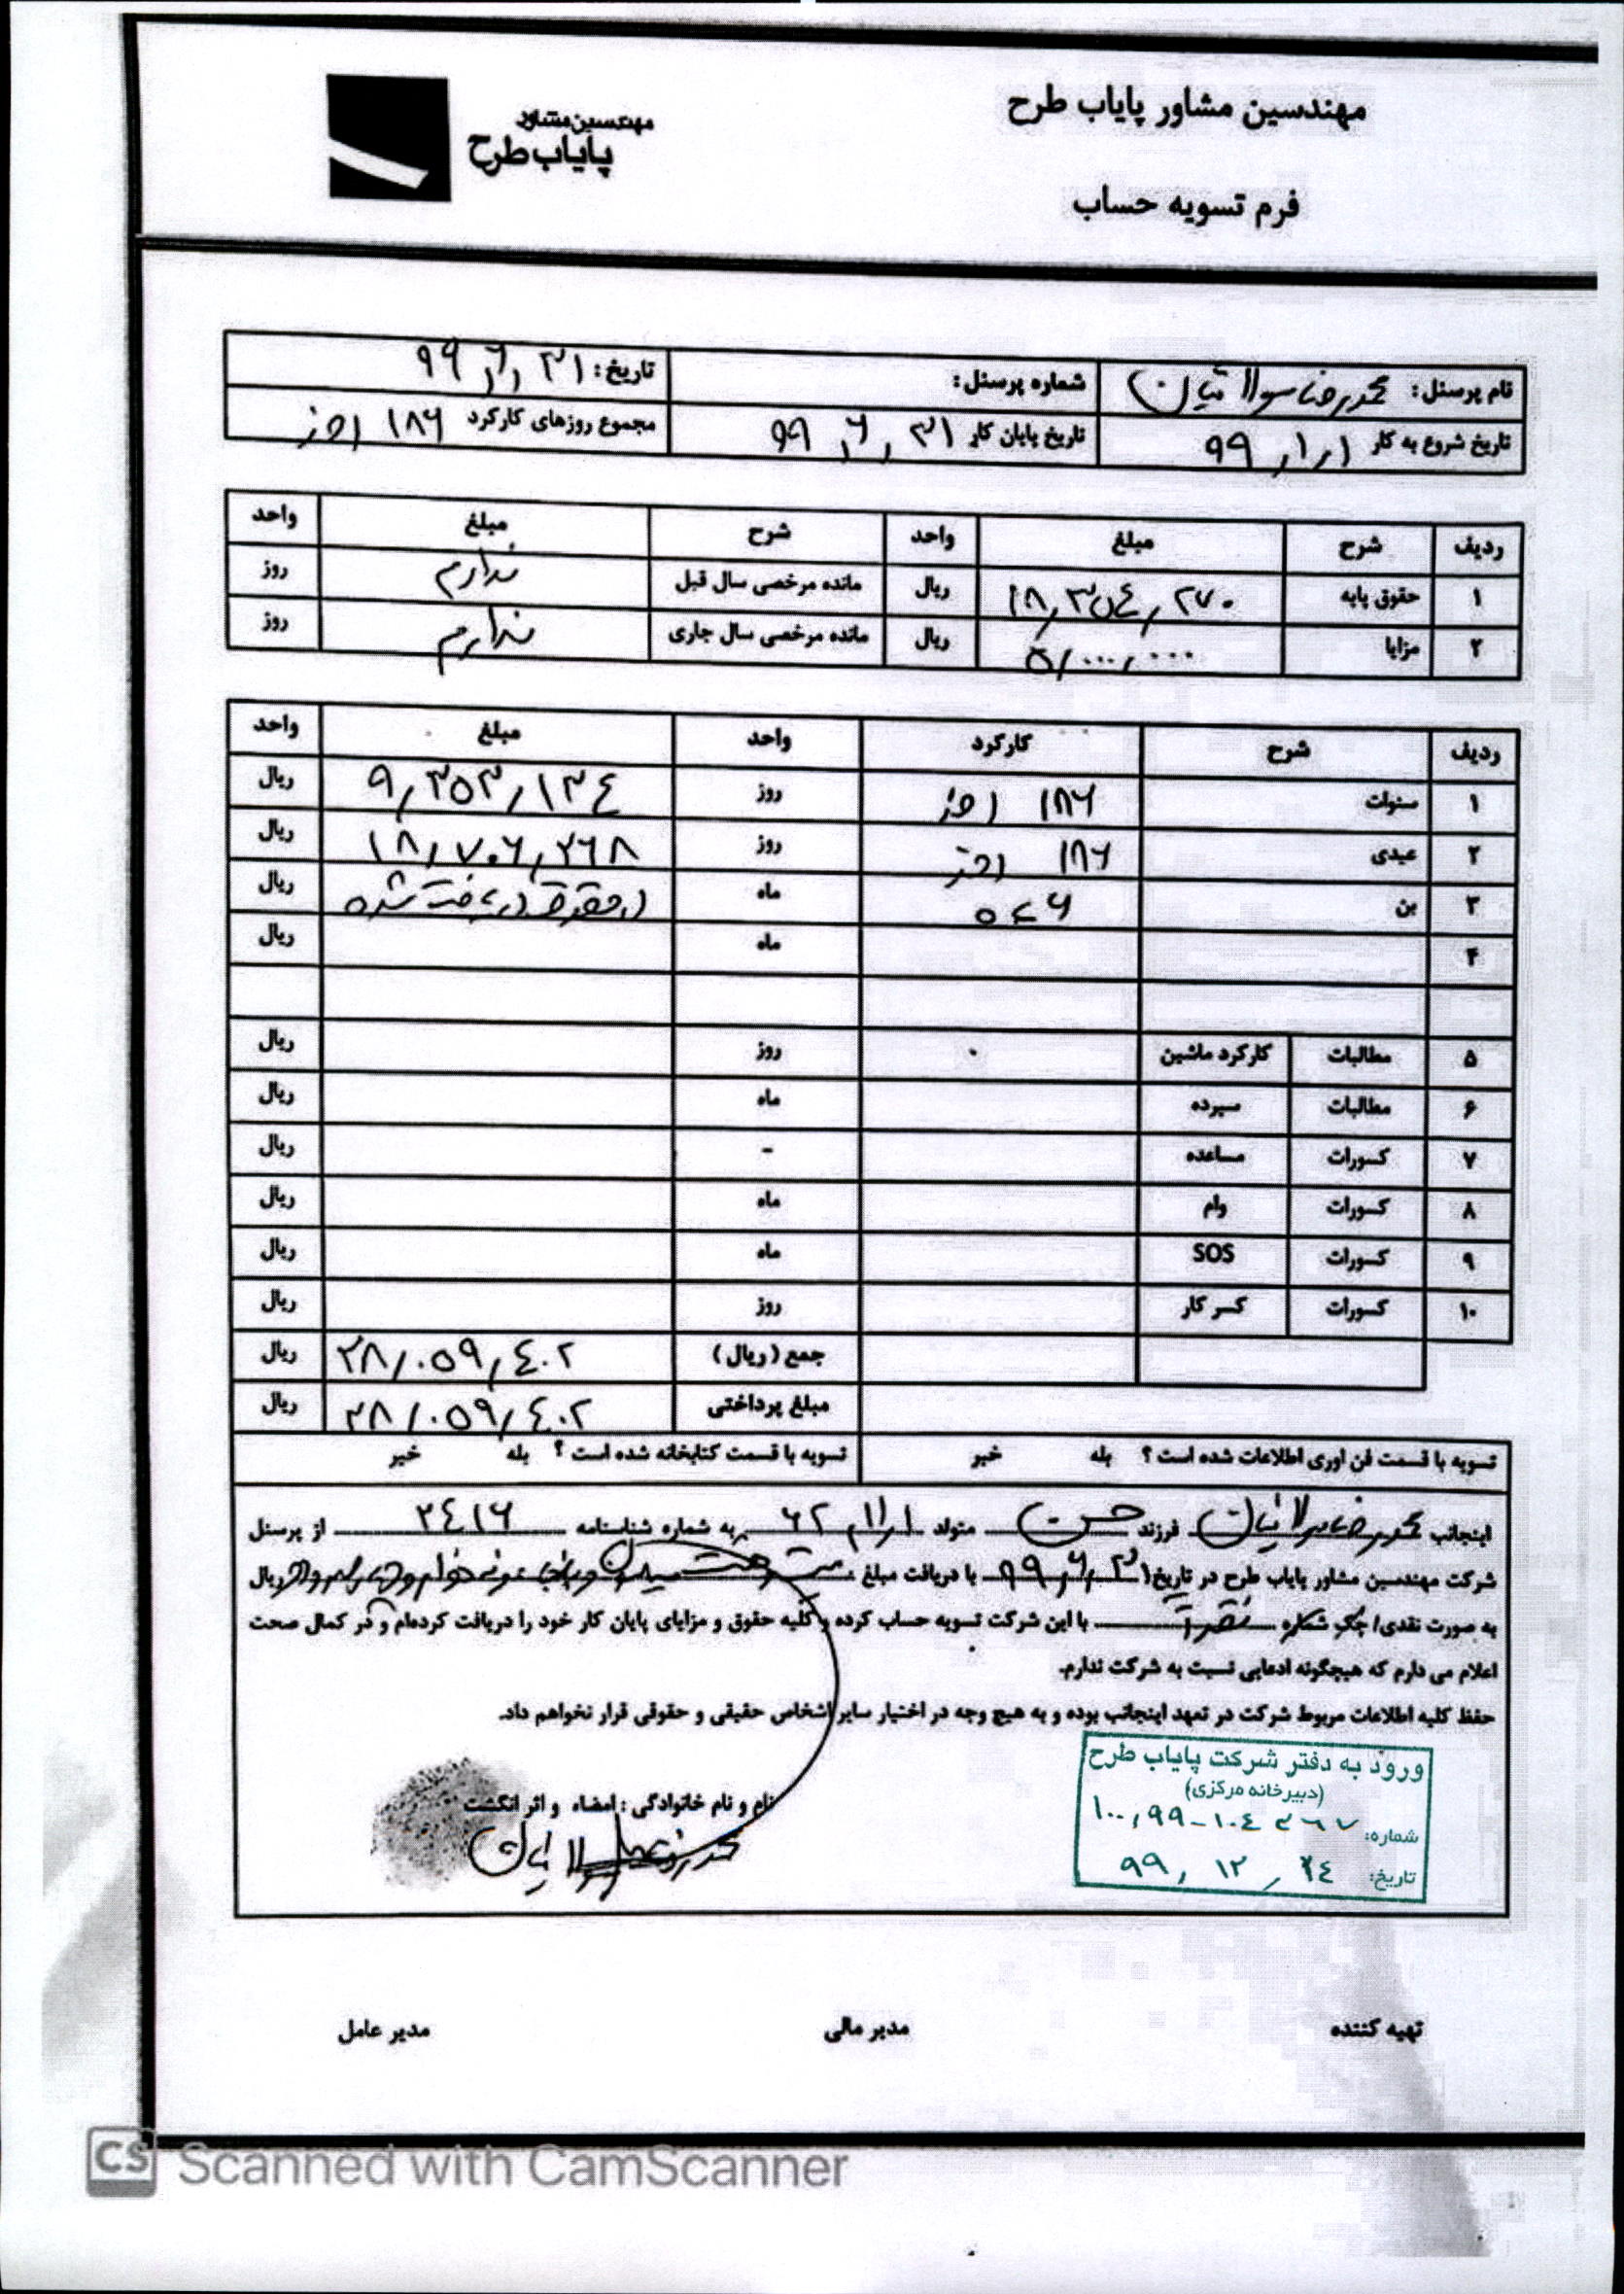 مهندسین مشاور پایاب طرح
مهندسین مشاور
پایاب طرح
فرم تسویه حساب
نام پرسنل: محمدرضا سولاتیان شماره پرسنل: تاریخ: ۹۹,۶,۳۱
تاریخ شروع به کار ۹۹,۱,۱ تاریخ پایان کار ۹۹,۶,۳۱ مجموع روزهای کارکرد ۱۸۶ روز
ردیف شرح مبلغ واحد شرح مبلغ واحد
۱ حقوق پایه ۱۸,۳۵۴,۲۷۰ ریال مانده مرخصی سال قبل ندارم روز
۲ مزایا ۵,۰۰۰,۰۰۰ ریال مانده مرخصی سال جاری ندارم روز
ردیف شرح کارکرد واحد مبلغ واحد
۱ سنوات ۱۸۶ روز روز ۹,۳۵۳,۱۳۴ ریال
۲ عیدی ۱۸۶ روز روز ۱۸,۷۰۶,۲۶۸ ریال
۳ بن ۶ ماه ماه در حقوق دریافت شده ریال
۴ ماه ریال
۵ مطالبات کارکرد ماشین ۰ روز ریال
۶ مطالبات سپرده ماه ریال
۷ کسورات مساعده - ریال
۸ کسورات وام ماه ریال
۹ کسورات SOS ماه ریال
۱۰ کسورات کسر کار روز ریال
جمع (ریال) ۲۸,۰۵۹,۴۰۲ ریال
مبلغ پرداختی ۲۸,۰۵۹,۴۰۲ ریال
تسویه با قسمت فن اوری اطلاعات شده است ؟ بله خیر تسویه با قسمت کتابخانه شده است ؟ بله خیر
اینجانب محمدرضا فرزند حسن متولد به شماره شناسنامه ۲۴۱۶ از پرسنل
شرکت مهندسین مشاور پایاب طرح در تاریخ ۹۹,۶,۳۱ با دریافت مبلغ بیست و هشت میلیون و پنجاه و نه هزار و چهارصد و دو ریال
به صورت نقدی/ چک شماره نقداً با این شرکت تسویه حساب کرده و کلیه حقوق و مزایای پایان کار خود را دریافت کرده‌ام و در کمال صحت
اعلام می دارم که هیچگونه ادعایی نسبت به شرکت ندارم.
حفظ کلیه اطلاعات مربوط شرکت در تعهد اینجانب بوده و به هیچ وجه در اختیار سایر اشخاص حقیقی و حقوقی قرار نخواهم داد.
ورود به دفتر شرکت پایاب طرح
(دبیرخانه مرکزی)
شماره: ۱۰۰,۹۹-۱۰۴۳۶۷
تاریخ: ۹۹, ۱۲, ۲۴
نام و نام خانوادگی : امضاء و اثر انگشت
تهیه کننده مدیر مالی مدیر عامل
CS Scanned with CamScanner